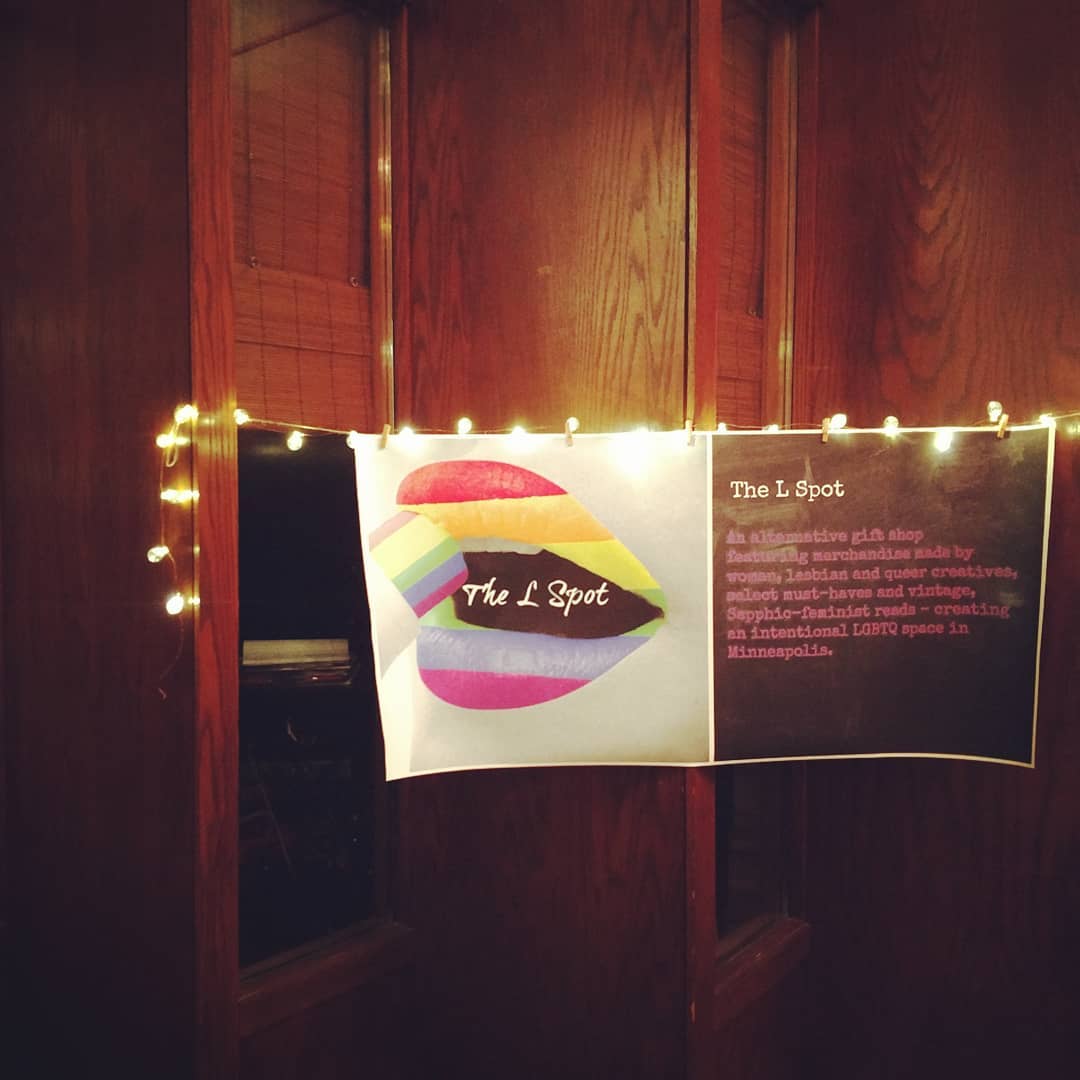 The L Spot
The L Spot
An alternative gift shop
featuring merchandise made by
women, lesbian and queer creatives,
select must-haves and vintage,
Sapphic-feminist reads - creating
an intentional LGBTQ space in
Minneapolis.